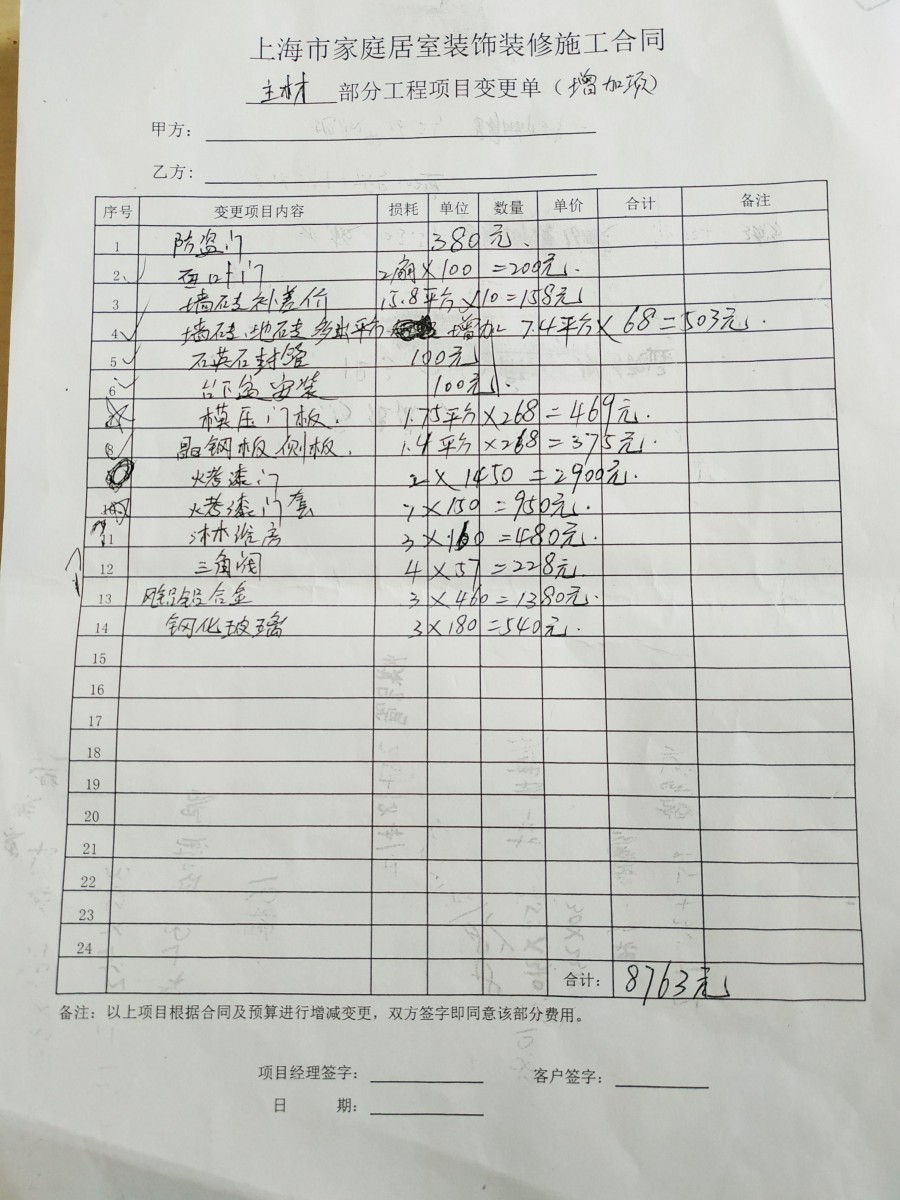 上海市家庭居室装饰装修施工合同
主材 部分工程项目变更单（增加项）
甲方：
乙方：
序号 变更项目内容 损耗 单位 数量 单价 合计 备注
1 防盗门 380元.
2 百叶门 2扇×100=200元.
3 墙砖补差价 15.8平方×10=158元
4 墙砖.地砖多出平方 增加 7.4平方×68=503元.
5 石英石封管 100元
6 台下盆安装 100元.
模压门板. 1.75平方×268=469元.
8 晶钢板侧板. 1.4平方×268=375元.
烤漆门 2×1450=2900元.
10 烤漆门套 7×150=950元.
11 淋水 房 3×160=480元.
12 三角阀 4×57=228元
13 铝合金 3×460=1380元.
14 钢化玻璃 3×180=540元.
15
16
17
18
19
20
21
22
23
24
合计： 8763元
备注：以上项目根据合同及预算进行增减变更，双方签字即同意该部分费用。
项目经理签字： 客户签字：
日 期：